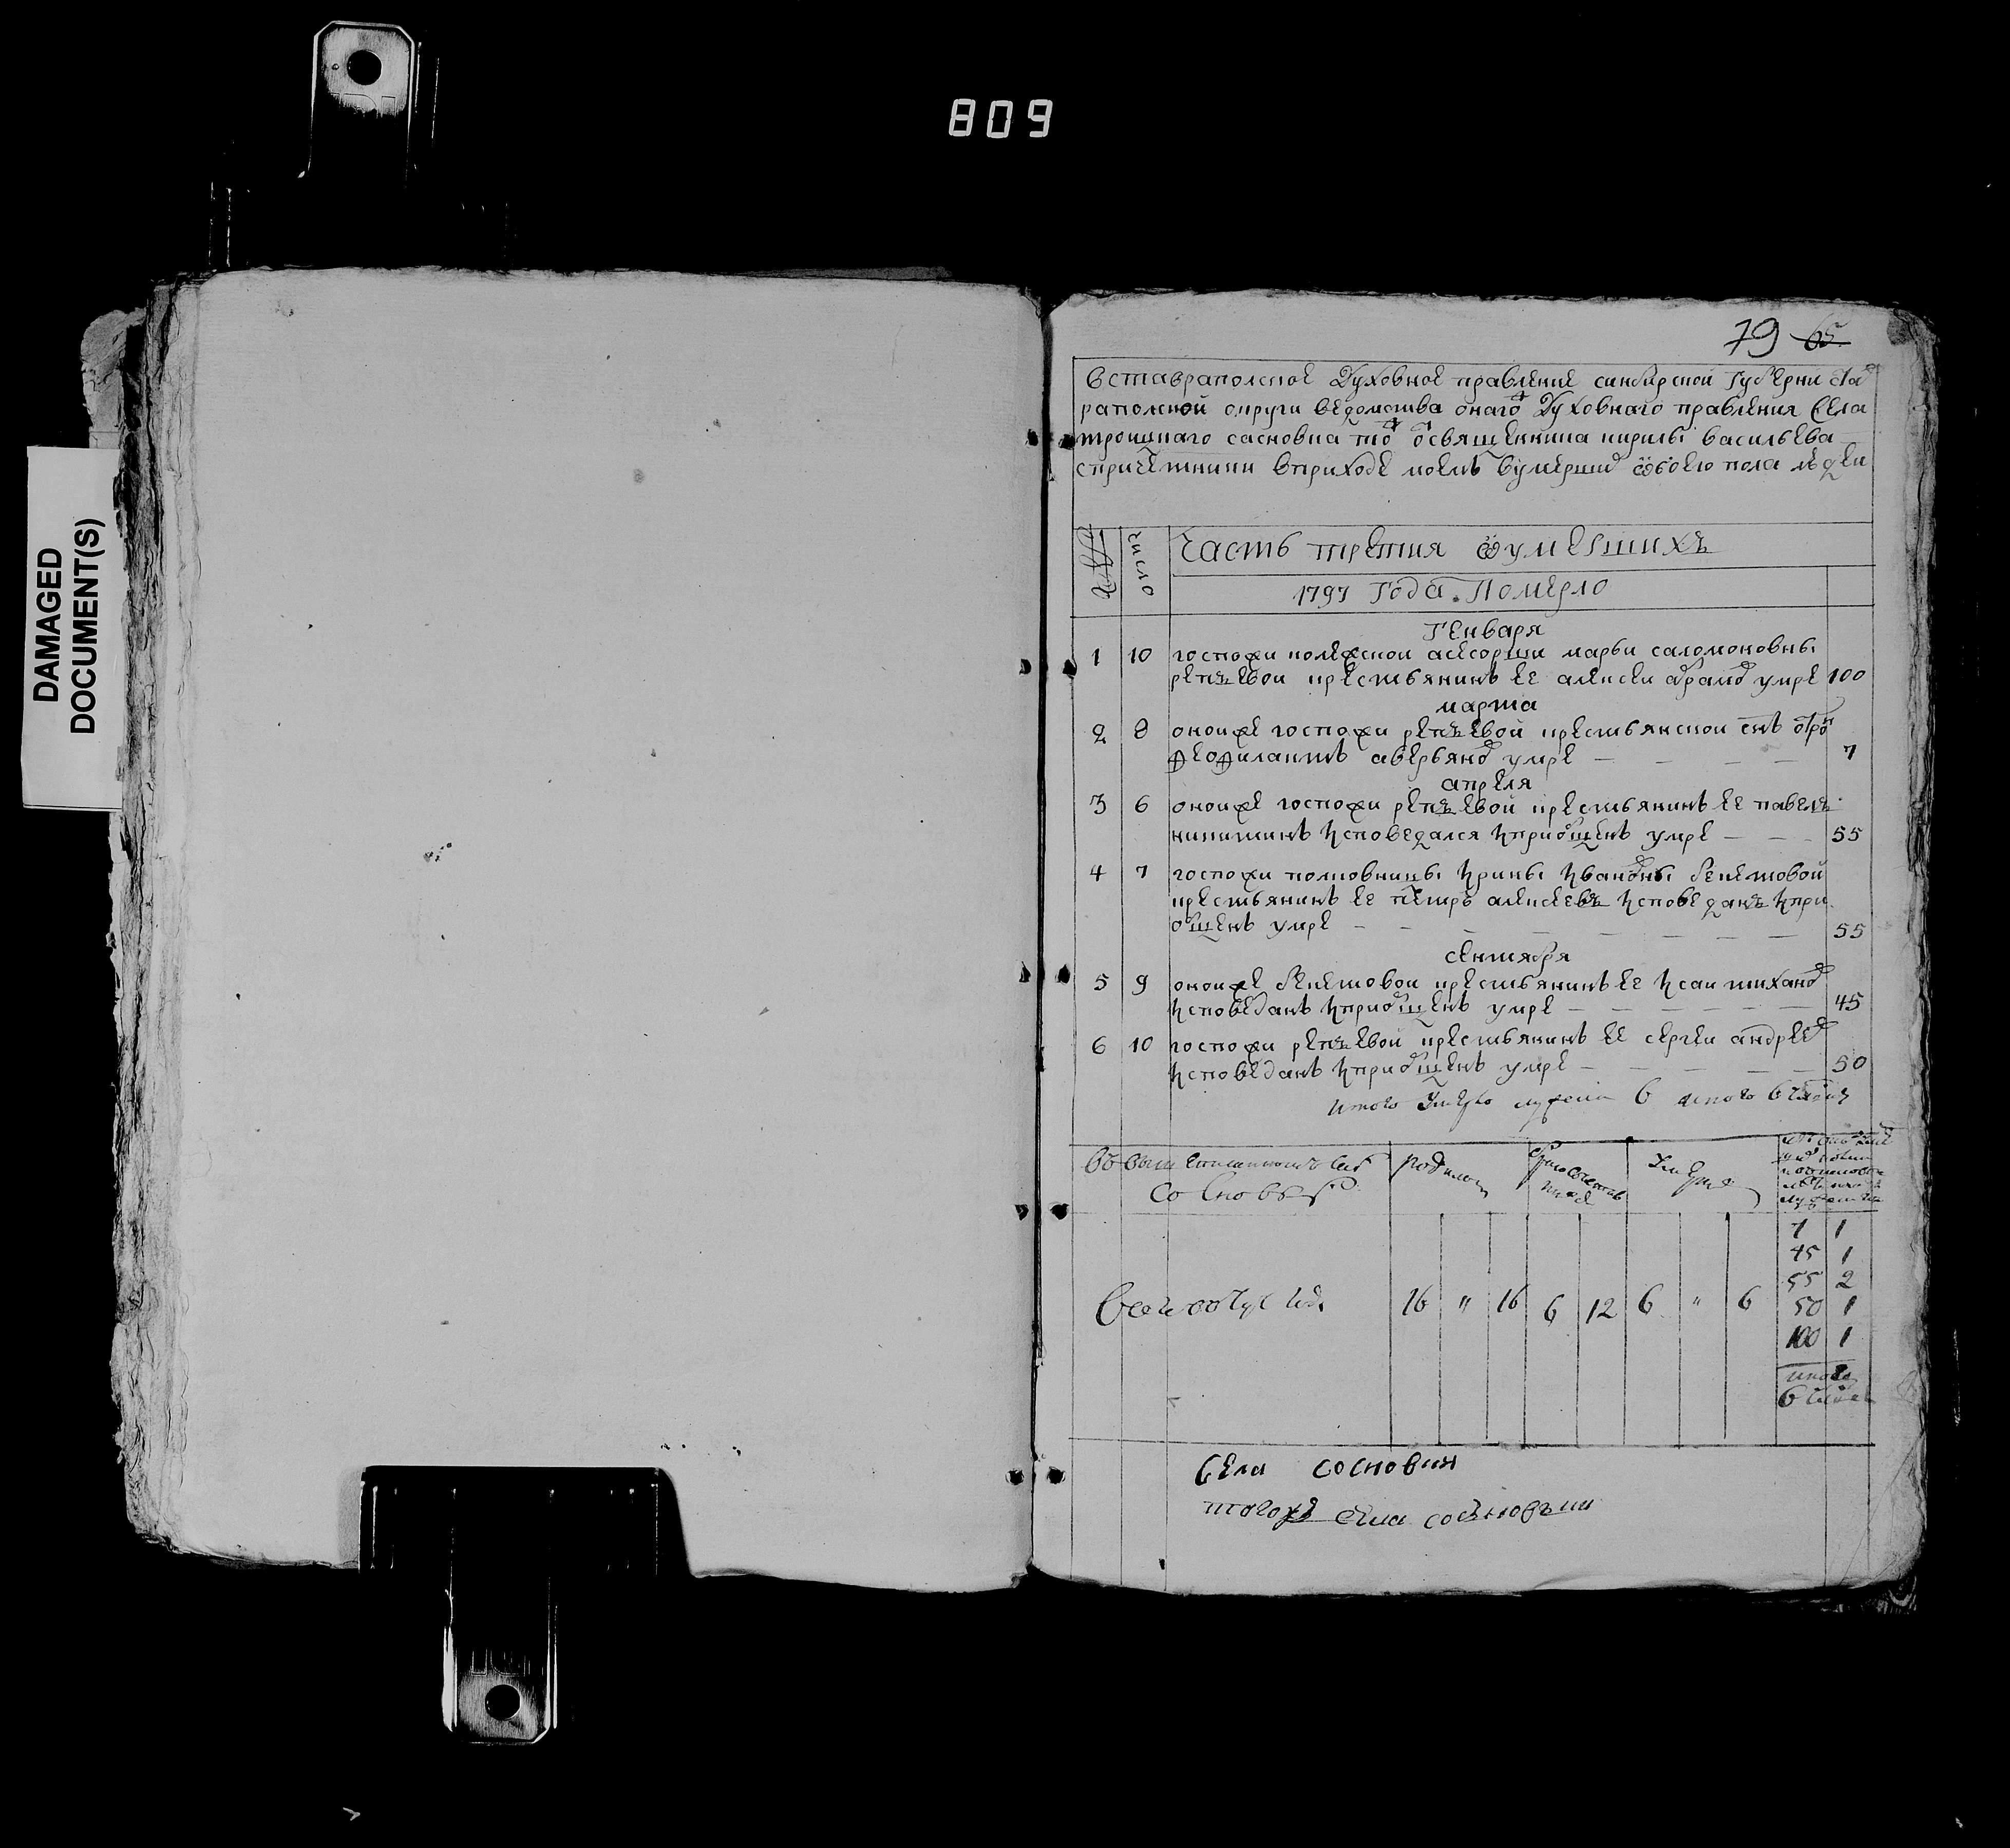 809
DAMAGED
DOCUMENT(S)
79 65
вставрапольское Духовное правление синбирской Губерни став
рапольской округи ведомства онаго Духовнаго правления Села
троицкаго сасновка тож освященника кирилы васильева
спричетники вприходе моемъ
обоего пола людеи
число
Часть третия ѿумершихъ
1797 Года. Померло
Генваря
1 10 госпожи колежской асесорши марьи саломоновны
репьевои крестьянинъ ее алексеи абрамо умре 100
марта
2 8 оноиже госпожи репьевой крестьянскои снъ отро
феофилактъ аверьяно умре — — — — 7
апреля
3 6 оноиже госпожи репьевой крестьянинъ ее павелъ
никитинъ исповедался иприобщенъ умре — — - 55
4 7 госпожи полковницы ирины ивановны бекетовой
крестьянинъ ее петръ алексеевъ исповеданъ ипри
общенъ умре — — — — — — — 55
сентября
5 9 оноиже бекетовои крестьянинъ ее исаи тихано
исповеданъ иприобщенъ умре — — — — — 45
6 10 госпожи репьевой крестьянинъ ее сергеи андрее
исповеданъ иприобщенъ умре — — — — — 50
итого умерло мужеска 6 итого 6 человек
въ вышеписанномъ селе
Сосновке
родилось
умерло
7 1
45 1
55 2
16 " 16 6 12 6 " 6
50 1
100 1
итого
6 человек
Села сосновки
тогоже села сосновъки